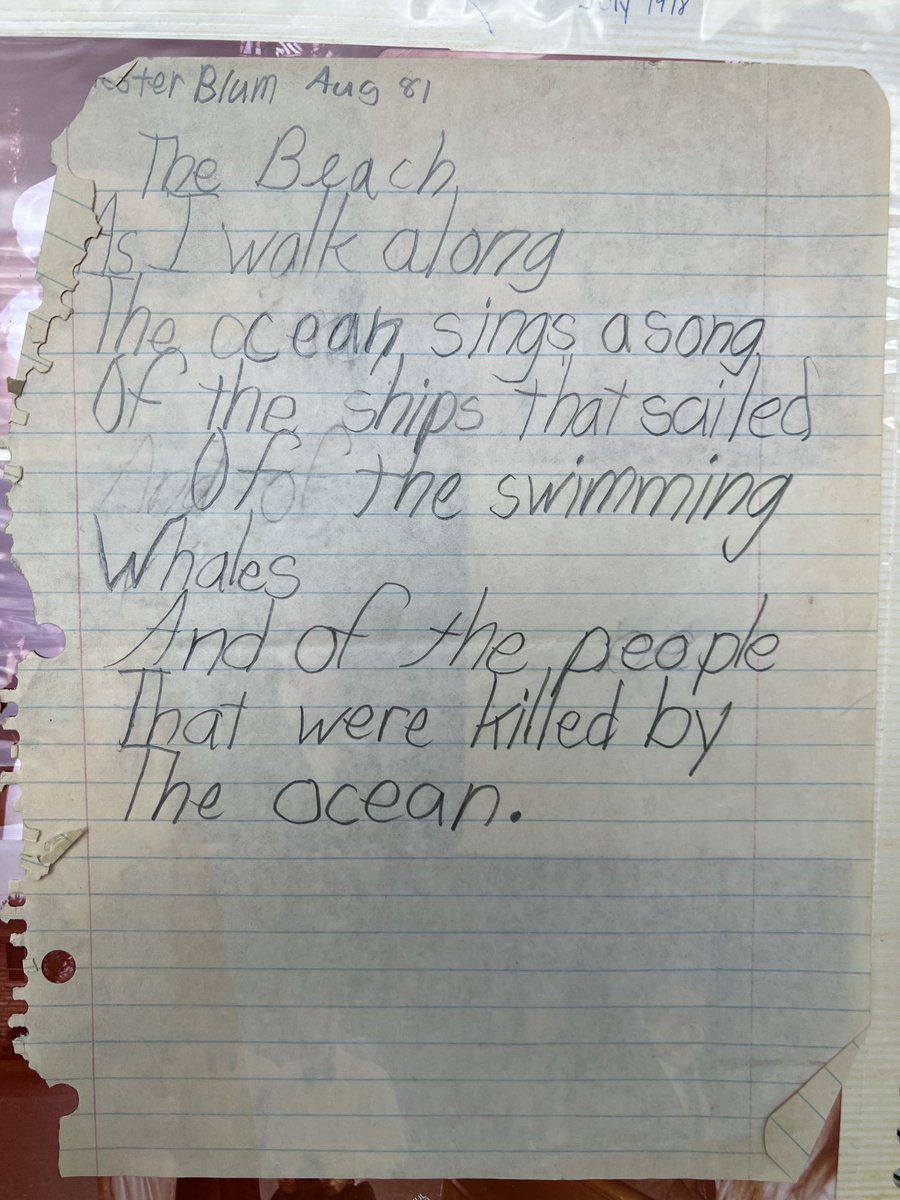 July 1978
Blum Aug 81
The Beach
As I walk along
The ocean sings a song
Of the ships that sailed
Of the swimming
Whales
And of the people
That were killed by
The ocean.